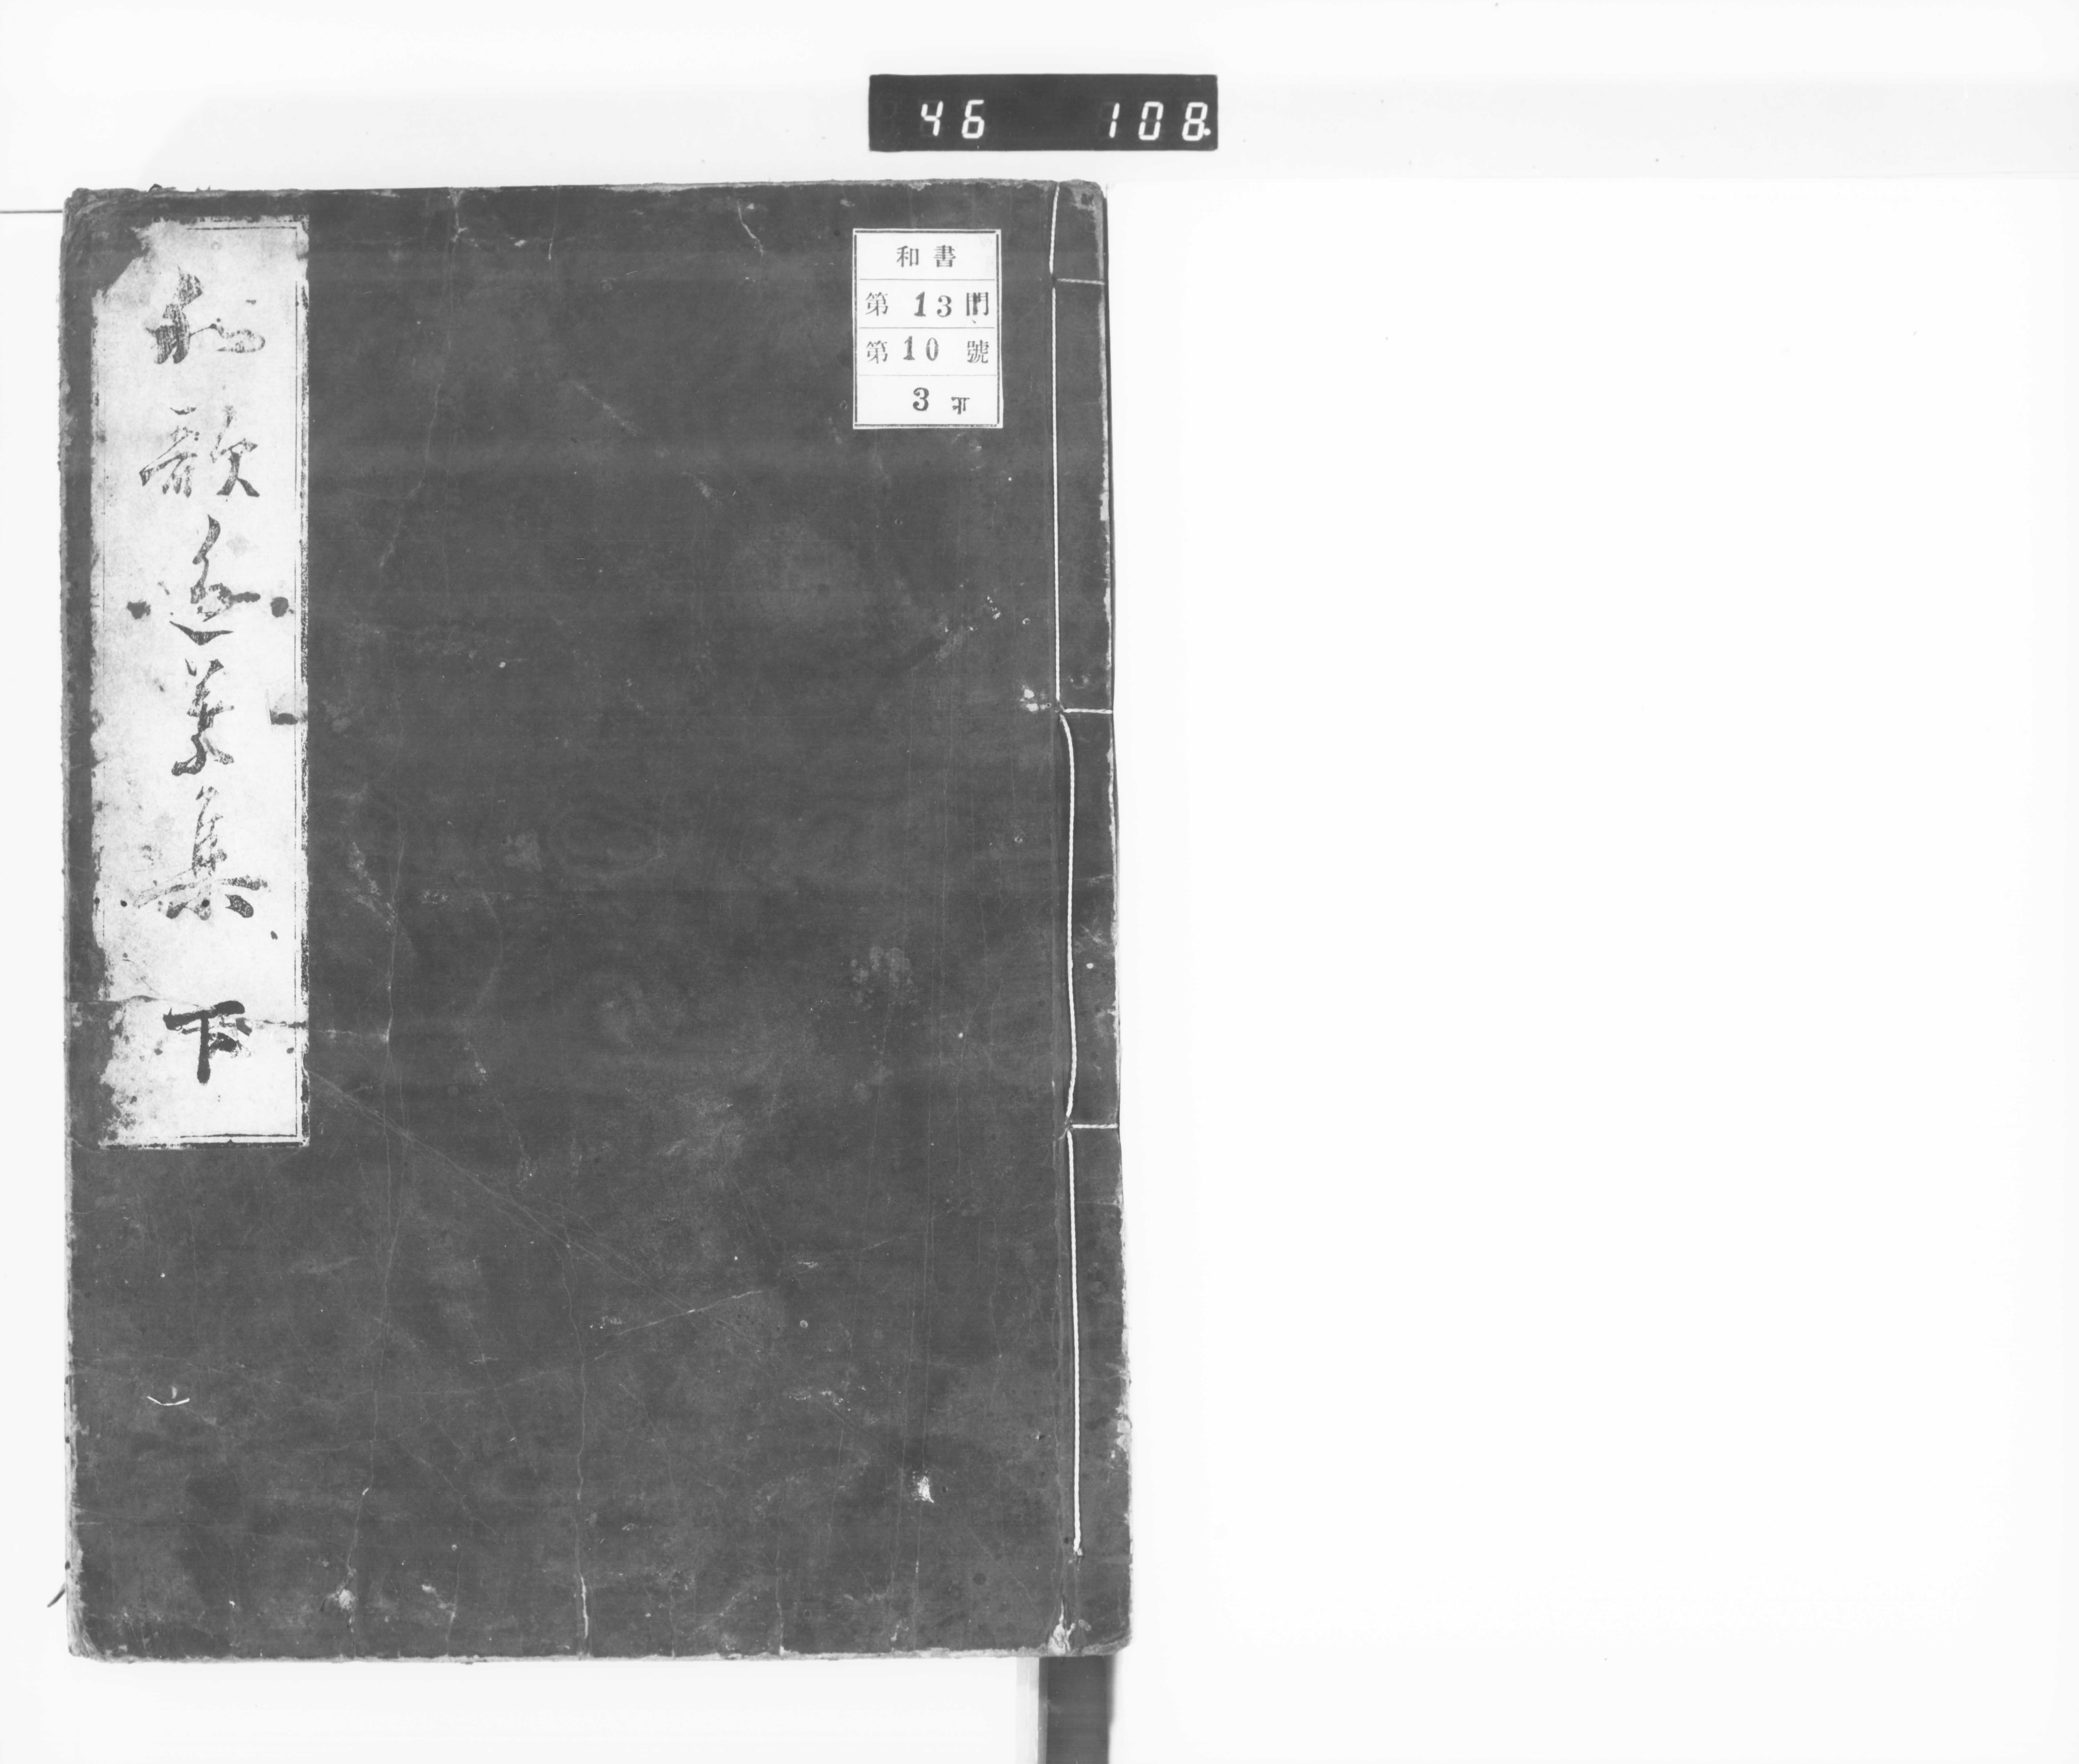 46 108
和書
第 13 門
第 10 號
3 冊
和歌函葉集 下